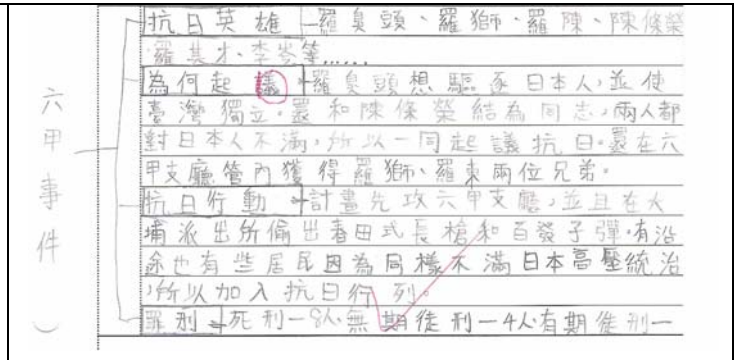 六甲事件
抗日英雄─羅臭頭、羅獅、羅陳、陳條榮
、羅其才、李岑等......
為何起議→羅臭頭想驅逐日本人,並使
臺灣獨立。還和陳條榮結為同志,兩人都
對日本人不滿,所以一同起議抗日。還在六
甲支廳管內獲得羅獅、羅東兩位兄弟。
抗日行動→計畫先攻六甲支廳,並且在大
埔派出所偷出春田式長槍和百發子彈,有沿
途也有些居民因為同樣不滿日本高壓統治
,所以加入抗日行列。
罪刑→死刑-8人、無期徒刑-4人、有期徒刑-